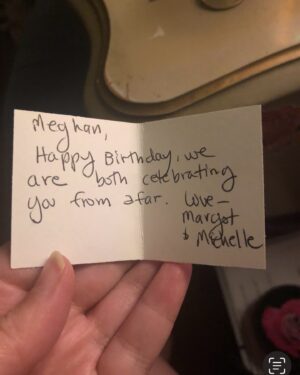 Meghan,
Happy Birthday, we
are both celebrating
you from afar. Love—
Margot
& Michelle